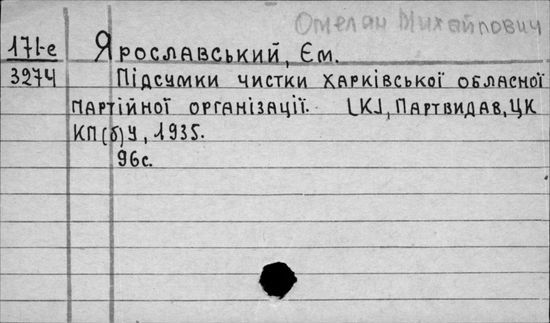 Омелян Михайлович
171-е Ярославський, Єм.
3274 Підсумки чистки харківської обласної
партійної організації. [К], Партвидав, ЦК
КП(б)У, 1935.
96с.